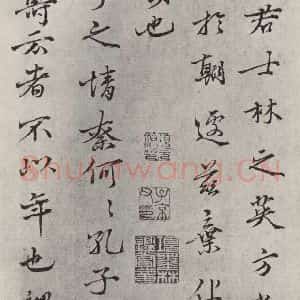 若士林之英方
於朝遽茲棄
也
之情奈何〻孔子
云者不以年也
Shufawang.CN